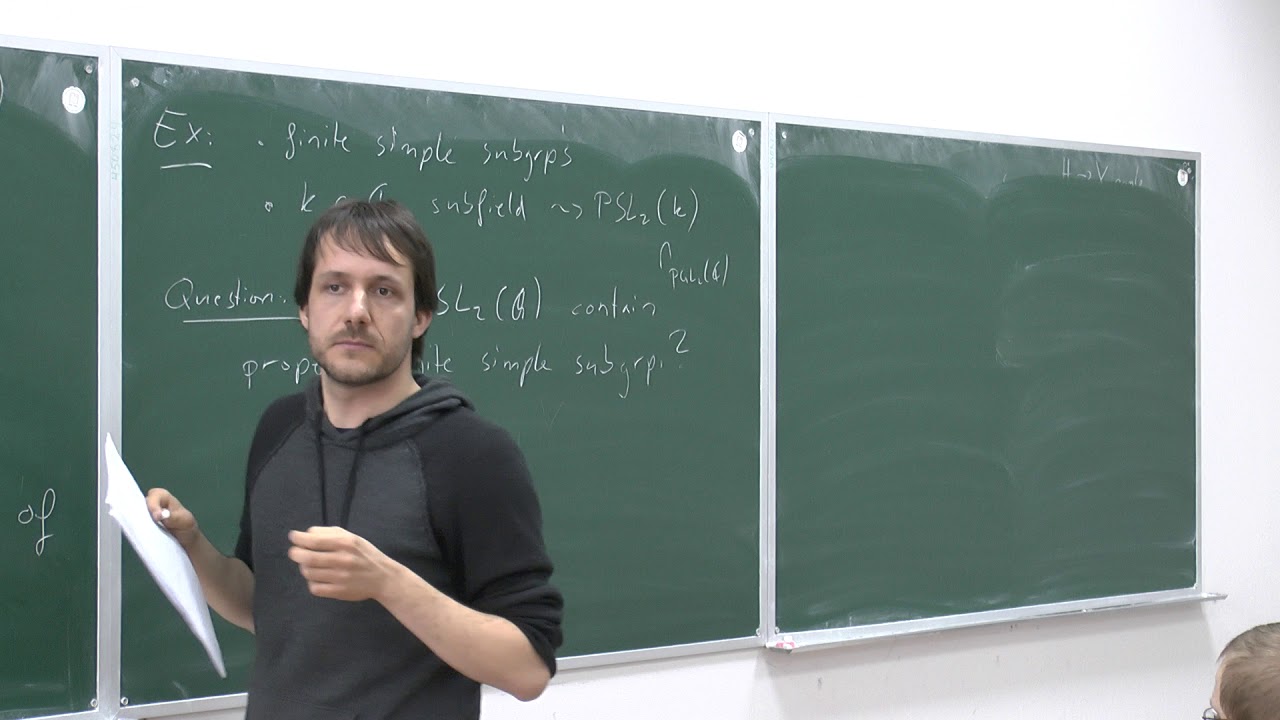 Ex: • finite simple subgrp's
• k subfield ⇝ PSL₂(k)
∩
PGL₂(ℂ)
Question: SL₂(ℚ) contain
simple subgrp.?
of